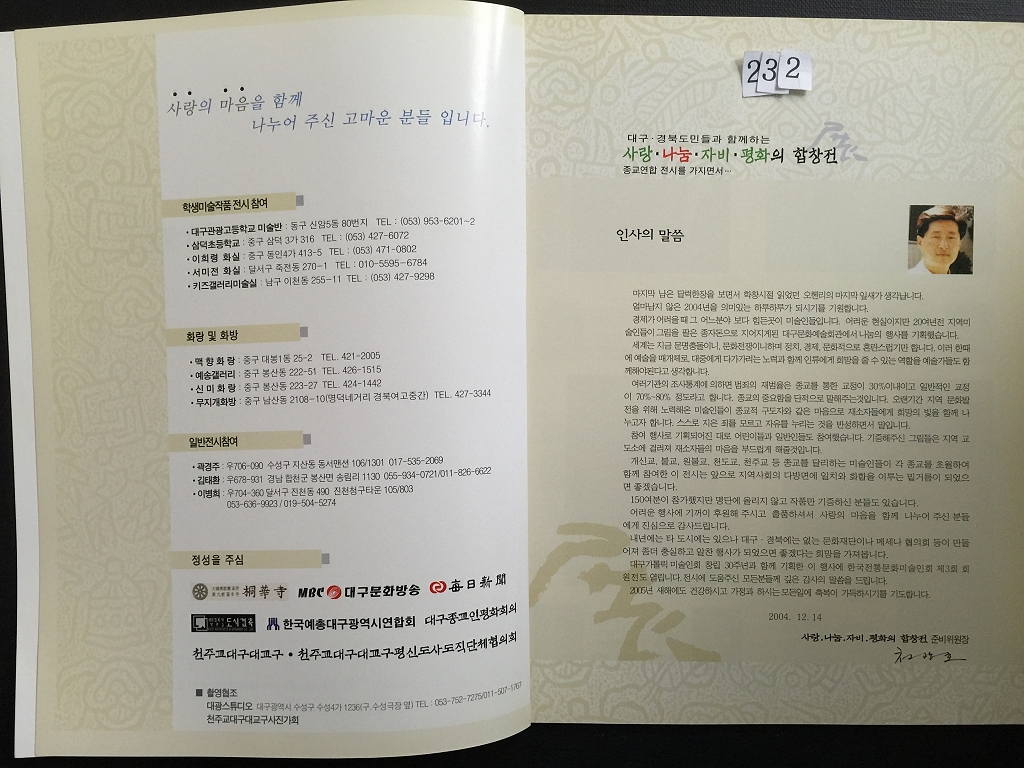 사랑의 마음을 함께
나누어 주신 고마운 분들 입니다.
학생미술작품 전시 참여
・대구관광고등학교 미술반 : 동구 신암5동 80번지 TEL : (053) 953-6201~2
・삼덕초등학교 : 중구 삼덕 3가 316 TEL : (053) 427-6072
・이희령 화실 : 중구 동인4가 413-5 TEL : (053) 471-0802
・서미전 화실 : 달서구 죽전동 270-1 TEL : 010-5595-6784
・키즈갤러리미술실 : 남구 이천동 255-11 TEL : (053) 427-9298
화랑 및 화방
・맥향화랑 : 중구 대봉1동 25-2 TEL. 421-2005
・예송갤러리 : 중구 봉산동 222-51 TEL. 426-1515
・신미화랑 : 중구 봉산동 223-27 TEL. 424-1442
・무지개화방 : 중구 남산동 2108-10(명덕네거리 경북여고중간) TEL. 427-3344
일반전시참여
・곽경주 : 우706-090 수성구 지산동 동서맨션 106/1301 017-535-2069
・김태환 : 우678-931 경남 합천군 봉산면 송림리 1130 055-934-0721/011-826-6622
・이병희 : 우704-360 달서구 진천동 490 진천청구타운 105/803
053-636-9923 / 019-504-5274
정성을 주신
桐華寺 MBC 대구문화방송 每日新聞
도시건축 한국예총대구광역시연합회 대구종교인평화회의
천주교대구대교구 · 천주교대구대교구평신도사도직단체협의회
■ 촬영협조
대광스튜디오 대구광역시 수성구 수성4가 1236(구.수성극장 옆) TEL : 053-752-7275/011-507-1767
천주교대구대교구사진가회
232
대구·경북도민들과 함께하는
사랑·나눔·자비·평화의 합창전
展
종교연합 전시를 가지면서…
인사의 말씀
마지막 남은 달력한장을 보면서 학창시절 읽었던 오헨리의 마지막 잎새가 생각납니다.
얼마남지 않은 2004년을 의미있는 하루하루가 되시기를 기원합니다.
경제가 어려울 때 그 어느분야 보다 힘든곳이 미술인들입니다. 어려운 현실이지만 20여년전 지역미
술인들이 그림을 팔은 종자돈으로 지어지게된 대구문화예술회관에서 나눔의 행사를 기획했습니다.
세계는 지금 문명충돌이니, 문화전쟁이니하며 정치, 경제, 문화적으로 혼란스럽기만 합니다. 이러한때
에 예술을 매개체로, 대중에게 다가가려는 노력과 함께 인류에게 희망을 줄 수 있는 역할을 예술가들도 함
께해야된다고 생각합니다.
여러기관의 조사통계에 의하면 범죄의 재범율은 종교를 통한 교정이 30%이내이고 일반적인 교정
이 70%~80% 정도라고 합니다. 종교의 중요함을 단적으로 말해주는것입니다. 오랜기간 지역 문화발
전을 위해 노력해온 미술인들이 종교적 구도자와 같은 마음으로 재소자들에게 희망의 빛을 함께 나
누고자 합니다. 스스로 지은 죄를 모르고 자유를 누리는 것을 반성하면서 말입니다.
참여 행사로 기획되어진 대로 어린이들과 일반인들도 참여했습니다. 기증해주신 그림들은 지역 교
도소에 걸려져 재소자들의 마음을 부드럽게 해줄것입니다.
개신교, 불교, 원불교, 천도교, 천주교 등 종교를 달리하는 미술인들이 각 종교를 초월하여
함께 참여한 이 전시는 앞으로 지역사회의 다방면에 일치와 화합을 이루는 밑거름이 되었으
면 좋겠습니다.
150여분이 참가했지만 명단에 올리지 않고 작품만 기증하신 분들도 있습니다.
어려운 행사에 기꺼이 후원해 주시고 출품하셔서 사랑의 마음을 함께 나누어 주신 분들
에게 진심으로 감사드립니다.
내년에는 타 도시에는 있으나 대구·경북에는 없는 문화재단이나 메세나 협의회 등이 만들
어져 좀더 충실하고 알찬 행사가 되었으면 좋겠다는 희망을 가져봅니다.
대구가톨릭 미술인회 창립 30주년과 함께 기획한 이 행사에 한국전통문화미술인회 제3회 회
원전도 열립니다. 전시에 도움주신 모든분들께 깊은 감사의 말씀을 드립니다.
2005년 새해에도 건강하시고 가정과 하시는 모든일에 축복이 가득하시기를 기도합니다.
2004. 12. 14
사랑.나눔.자비.평화의 합창전 준비위원장
展